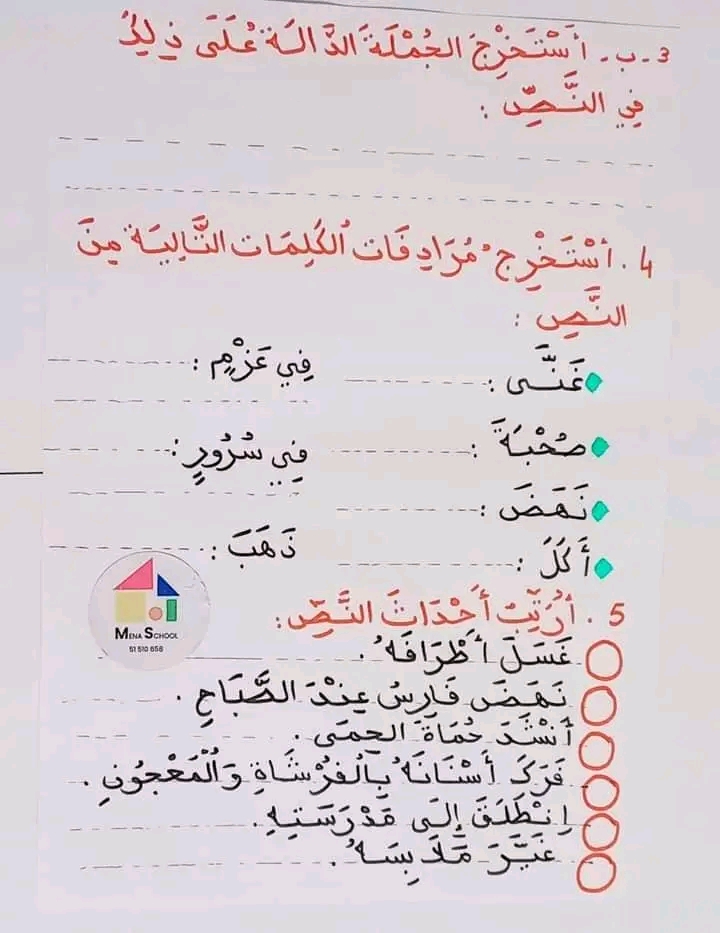 3 - ب - أَسْتَخْرِجُ الجُمْلَةَ الدَّالَةَ عَلَى ذَلِكَ
فِي النَّصِّ :
4 . أَسْتَخْرِجُ مُرَادِفَاتِ الكَلِمَاتِ التَّالِيَةِ مِنَ
النَّصِ :
غَنَّى : فِي عَزْمٍ :
صُحْبَةَ : فِي سُرُورٍ :
نَهَضَ :
أَكَلَ : ذَهَبَ :
MENA SCHOOL
51 510 658
5 . أُرَتِّبُ أَحْدَاثَ النَّصِّ :
غَسَلَ أَطْرَافَهُ .
نَهَضَ فَارِسُ عِنْدَ الصَّبَاحِ .
أَنْشَدَ حُمَاةَ الحِمَى .
فَرَكَ أَسْنَانَهُ بِالْفُرْشَاةِ وَالْمَعْجُونِ .
اِنْطَلَقَ إِلَى مَدْرَسَتِهِ .
غَيَّرَ مَلَابِسَهُ .